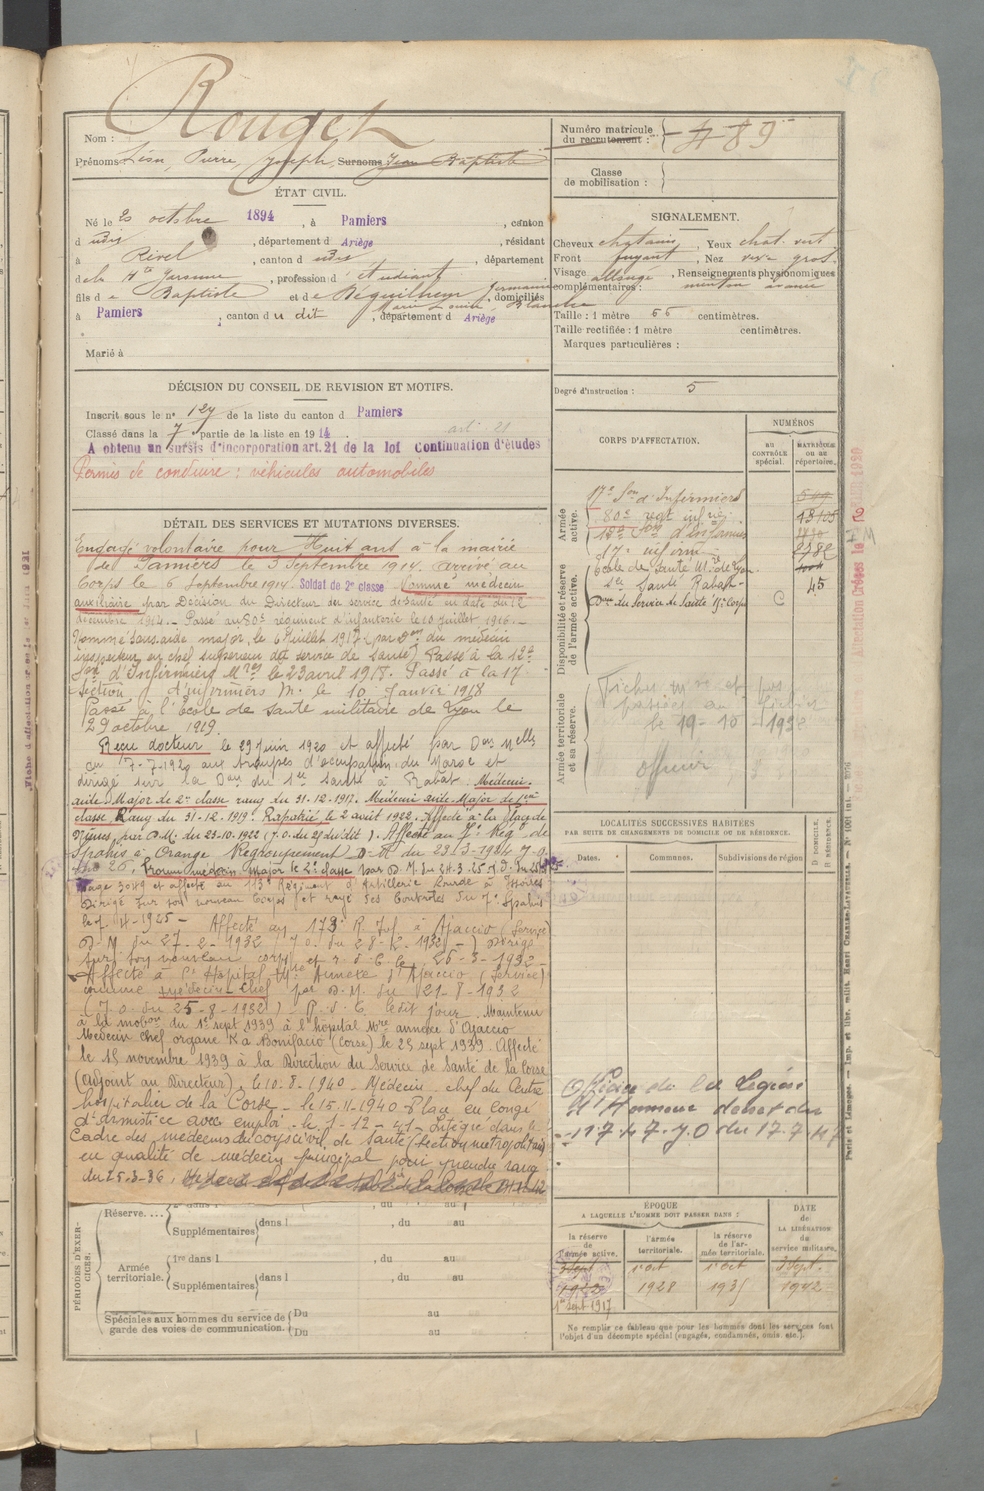 Rouget
Nom :
Prénoms Léon, Pierre, Joseph, Surnoms Jean Baptiste
ÉTAT CIVIL.
Né le 20 octobre 1894, à Pamiers, canton
d udit, département d Ariège, résidant
à Rivel, canton d udit, département
de la Hte Garonne, profession d' étudiant
fils d e Baptiste et d e Béquilhem Germaine, domiciliés
Marie Louise, Blanche
à Pamiers, canton d u dit, département d Ariège
Marié à
DÉCISION DU CONSEIL DE REVISION ET MOTIFS.
Inscrit sous le n° 127 de la liste du canton d Pamiers
art. 21
Classé dans la 7 partie de la liste en 1914.
A obtenu un sursis d'incorporation art. 21 de la loi Continuation d'études
Permis de conduire : véhicules automobiles
DÉTAIL DES SERVICES ET MUTATIONS DIVERSES.
Engagé volontaire pour Huit ans à la mairie
de Pamiers le 3 Septembre 1914. arrivé au
Corps le 6 Septembre 1914. Soldat de 2e classe Nommé médecin
auxiliaire par Décision du Directeur du service de Santé en date du 12
décembre 1914. - Passé au 80e régiment d'infanterie le 10 juillet 1916. -
Nommé sous aide major, le 6 juillet 1917 (par Don du médecin
inspecteur en chef supérieur du service de santé) Passé à la 12e
Son d'Infirmiers Mres le 23 avril 1918. Passé à la 17e
Section d'infirmiers M. le 10 Janvier 1918
Passé à l'École de Santé militaire de Lyon le
29 octobre 1919.
Reçu docteur le 29 Juin 1920 et affecté par Don Mlle
du 7-7-1920 aux troupes d'occupation du Maroc et
dirigé sur la Don du 1er Santé à Rabat. Médecin
aide Major de 2e classe rang du 31.12.1917. Médecin aide-Major de 1ère
classe Rang du 31-12-1919. Rapatrié le 2 août 1922. Affecté à la place de
Nîmes, par D.M. du 23-10-1922 (J.O. du 25 du dit). Affecté au 7e Reg de
Spahis à Orange Regroupement D.M. du 29-3-1924 J.O.
Promu médecin Major de 2e classe par D.M. du 24-3-25 J.O.
page 3049 et affecté au 113e Régiment d'Artillerie Lourde à Issoires
Dirigé sur son nouveau Corps et rayé des Contrôles du 7e Spahis
le 7-4-1925 - Affecté au 173e R. Inf. à Ajaccio (Service)
D.M. du 27-2-1932 (J.O. du 28-2-1932 -) Dirigé
sur son nouveau corps et r. d. C. le 25-3-1932 -
Affecté à l'Hôpital Mre Annexe d'Ajaccio (Service)
comme médecin-chef par D.M. du 21-8-1932
(J.O. du 25-8-1932) R. d. C. ledit jour. Maintenu
à la mobon du 1er sept 1939 à l'hôpital Mre annexe d'Ajaccio
Médecin Chef organe K à Bonifacio (Corse) le 25 sept 1939. Affecté
le 15 novembre 1939 à la Direction du Service de Santé de la Corse
(adjoint au Directeur), le 10-8-1940 - Médecin-chef du Centre
hospitalier de la Corse - le 15-11-1940 Placé en congé
d'armistice avec emploi - le 1-12-41 - Intégré dans le
Cadre des médecins du corps civil de Santé (section métropolitain)
en qualité de médecin principal pour prendre rang
du 25-3-36,
PÉRIODES D'EXERCICES.
Réserve.... dans l , du au
Supplémentaires dans l , du au
Armée territoriale. 1re dans l , du au
Supplémentaires dans l , du au
Spéciales aux hommes du service de garde des voies de communication. Du au
Du au
Numéro matricule
du recrutement : 489
Classe
de mobilisation :
SIGNALEMENT.
Cheveux chatains, Yeux chat. vert
Front fuyant, Nez gros.
Visage allongé, Renseignements physionomiques
complémentaires : menton avancé
Taille : 1 mètre 66 centimètres.
Taille rectifiée : 1 mètre centimètres.
Marques particulières :
Degré d'instruction : 5
CORPS D'AFFECTATION.
NUMÉROS
AU CONTRÔLE spécial.
MATRICULE OU AU répertoire.
Armée active.
17e Son d'Infirmiers
80e regt infrie
12e Son d'Infirmiers
17e infirm
Disponibilité et réserve de l'armée active.
École de Santé Mre de Lyon
Santé Rabat 45
Don du Service de Santé 7e Corps C
Armée territoriale et sa réserve.
le 19-10-1932
officier
Affectation Créges le
LOCALITÉS SUCCESSIVES HABITÉES
PAR SUITE DE CHANGEMENTS DE DOMICILE OU DE RÉSIDENCE.
Dates.
Communes.
Subdivisions de région
D DOMICILE.
R RÉSIDENCE.
Officier de la Légion
d'Honneur décret du
17.7.47. J.O du 17.7.47
ÉPOQUE
A LAQUELLE L'HOMME DOIT PASSER DANS :
la réserve de l'armée active.
l'armée territoriale.
la réserve de l'armée territoriale.
DATE de LA LIBÉRATION du service militaire.
3 Sept 1 oct 1 oct 3 Sept.
1922 1928 1935 1942
1er Sept 1917
Ne remplir ce tableau que pour les hommes dont les services font
l'objet d'un décompte spécial (engagés, condamnés, omis. etc.).
Paris et Limoges. — Imp. et libr. milit. Henri CHARLES-LAVAUZELLE.